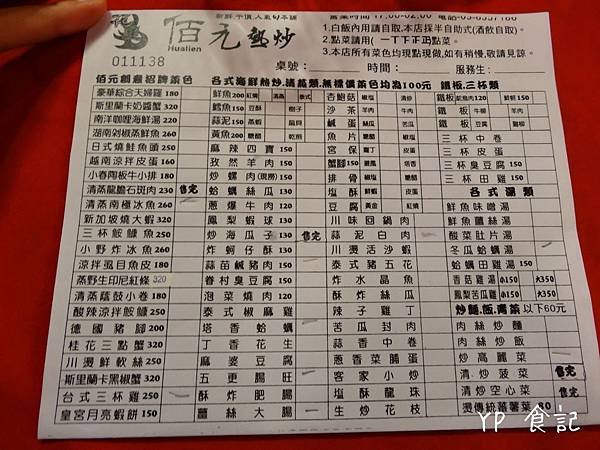 新鮮.平價.人氣旬本舖
佰元熱炒
Hualien
011138
營業時間 17:00-02:00 電話:03-8357186
1.白飯內用請自取,本店採半自助式(酒飲自取)。
2.點菜請用(一丁下正)點菜。
3.本店所有菜色均現點現做,如有稍慢,敬請見諒。
桌號: 時間: 服務生:
佰元創意招牌菜色
豪華綜合天婦羅 180
斯里蘭卡奶醬蟹 320
南洋咖哩海鮮湯 220
湖南剁椒蒸鮮魚 260
日式燒鮭魚頭 250
越南涼拌皮蛋 160
小春陶板牛小排 180
清蒸龍膽石斑肉 230 售完
清蒸南極冰魚 250
新加坡燒大蝦 320
三杯鮟鱇魚 250
小野炸冰魚 260
涼拌虱目魚皮 180
蒸野生印尼紅條 320
清蒸蘿鼓小卷 180
酸辣涼拌鮟鱇 250
德國豬腳 200
桂花三點蟹 320
川燙鮮軟絲 250
斯里蘭卡黑椒蟹 320
台式三杯雞 250
皇宮月亮蝦餅 150
各式海鮮熱炒.清蒸類.無標價菜色均為100元
鮮魚 200 紅燒 清蒸 泰式
鱈魚 150 豆酥 樹子
蒜泥 150 蒜蓉
黃魚 200 糖醋 乾煎
麻辣四寶 150
孜然羊肉 150
炒螺肉(現撈) 150
蛤蠣絲瓜 130
蔥爆牛肉 120
鳳梨蝦球 130
炒海瓜子 130 售完
炸蚵仔酥 130
蒜苗鹹豬肉 150
眷村臭豆腐 150
泡菜燒肉 120
泰式椒麻雞
塔香蛤蠣
丁香花生
麻婆豆腐
五更腸旺
酥炸肥腸
薑絲大腸
杏鮑菇 椒鹽 清炒
沙茶 羊肉 牛肉
鹹蛋 絲瓜 苦瓜
魚片 糖醋 豆瓣
宮保 雞丁 皮蛋
蟹腳 150 避風 塔香
排骨 椒鹽 糖醋
塩酥 鮮蚵 皮蛋
豆腐 黃金 紅燒
川味回鍋肉
蒜泥白肉 售完
川燙活沙蝦
泰式豬五花
炸水晶魚
酥炸絲瓜
辣子雞丁
苦瓜封肉
蒜香中卷
蔥香菜脯蛋
客家小炒
塩酥龍珠
生炒花枝
鐵板,三杯類
鐵板 鮮蚵 150
鐵板 牛柳 羊柳
鐵板 豆腐
三杯中卷
三杯皮蛋
三杯臭豆腐 150
三杯田雞 150
各式湯類
鮮魚味噌湯
鮮魚薑絲湯
酸菜肚片湯
冬瓜蛤蠣湯
蛤蠣田雞湯 150
香菇雞湯 小150 大350
鳳梨苦瓜雞 小150 大350
炒麵.飯.青菜 以下60元
肉絲炒麵
肉絲炒飯
炒高麗菜
清炒菠菜 售完
清炒空心菜 售完
燙傳統蕃薯葉 80
YP 食記